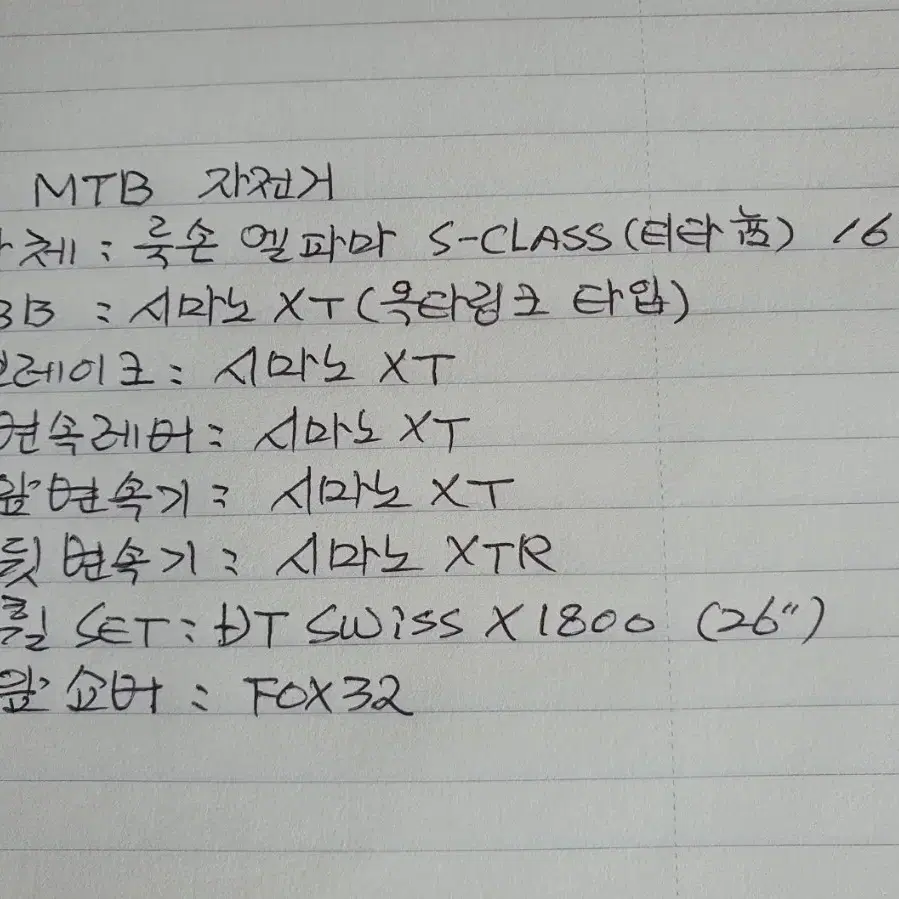 MTB 자전거
차체 : 룩손 엘파마 S-CLASS (티타늄) 16
BB : 시마노 XT (옥타링크 타입)
브레이크 : 시마노 XT
변속레버 : 시마노 XT
앞변속기 : 시마노 XT
뒷변속기 : 시마노 XTR
휠 SET : DT SWiSS X1800 (26")
앞쇼버 : FOX32